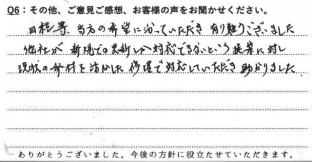 Q6：その他、ご意見ご感想、お客様の声をお聞かせください。
日程等、当方の希望に沿っていただき有り難うございました
他社が新規での更新しか対応できないという提案に対し
現状の部材を活かした修理で対応していただき助かりました
ありがとうございました。今後の方針に役立たせていただきます。